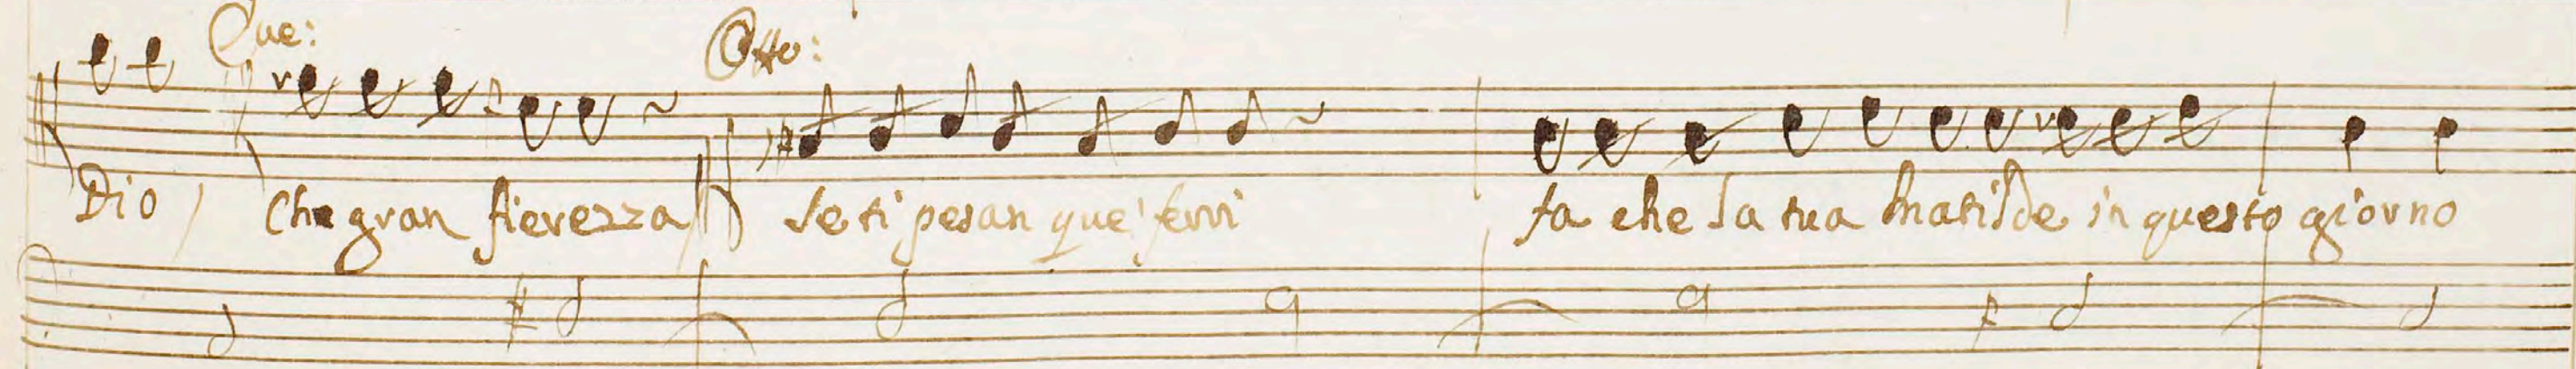 Que: Otto:
Dio, Che gran fierezza, Se ti pesan que' ferri fa che la tua Matilde in questo giorno